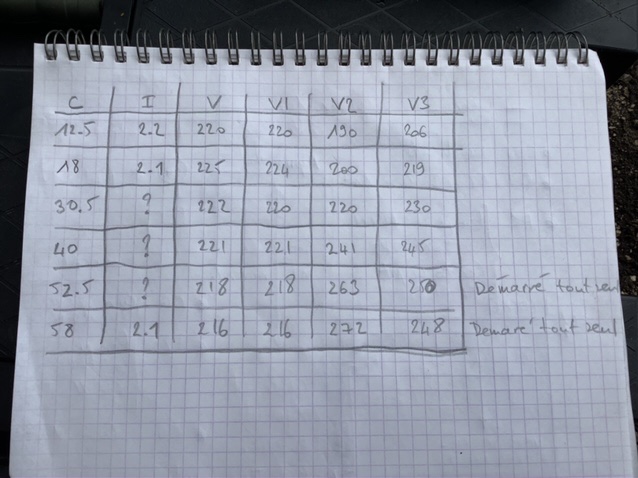 C I V V1 V2 V3
12.5 2.2 220 220 190 206
18 2.1 225 224 200 219
30.5 ? 222 220 220 230
40 ? 221 221 241 245
52.5 ? 218 218 263 250 Démarré tout seul
58 2.1 216 216 272 248 Demaré tout seul